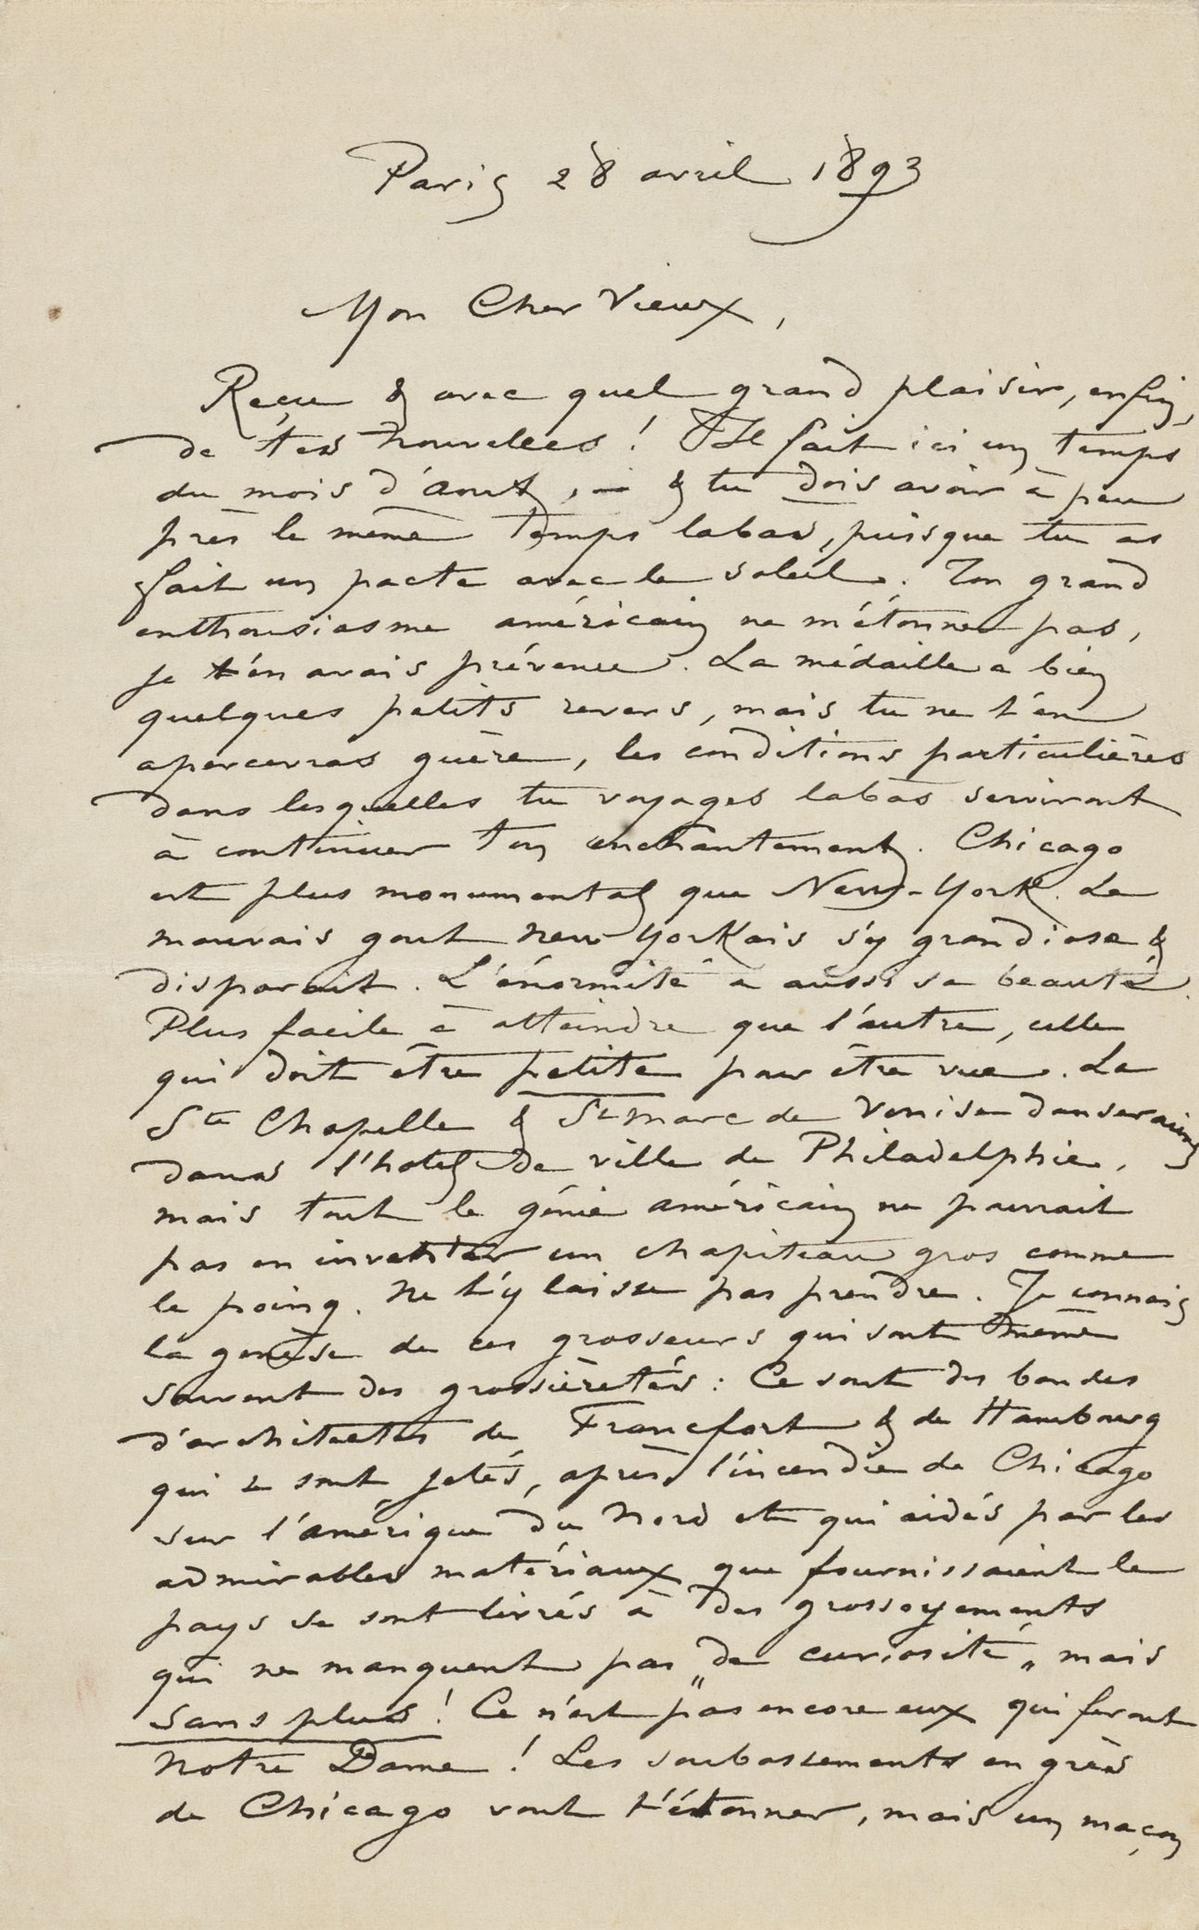 Paris 28 avril 1893
Mon Cher Vieux,
Reçu & avec quel grand plaisir, enfin,
de tes nouvelles ! Il fait ici un temps
du mois d'août, – & tu dois avoir à peu
près le même temps labas, puisque tu as
fait un pacte avec le soleil. Ton grand
enthousiasme américain ne m'étonne pas,
je t'en avais prévenu. La médaille a bien
quelques petits revers, mais tu ne t'en
apercevras guère, les conditions particulières
dans lesquelles tu voyages labas serviront
à continuer ton enchantement. Chicago
est plus monumental que New-York. Le
mauvais gout New Yorkais s'y grandiose &
disparait. L'énormité a aussi sa beauté.
Plus facile à atteindre que l'autre, celle
qui doit être petite pour être vue. La
Ste Chapelle & St Marc de Venise danseraient
dans l'hotel de ville de Philadelphie,
mais tout le génie américain ne pourrait
pas en inventer un chapiteau gros comme
le poing. Ne t'y laisse pas prendre. Je connais
la genèse de ces grosseurs qui sont même
souvent des grossièretés : Ce sont des bandes
d'architectes de Francfort & de Hambourg
qui se sont jetés, après l'incendie de Chicago
sur l'amérique du Nord et qui aidés par les
admirables matériaux que fournissaient le
pays se sont livrés à des grossoyements
qui ne manquent pas „de curiosité„ mais
sans plus ! Ce n'est pas encore eux qui feront
Notre Dame ! Les soubassements en grès
de Chicago vont t'étonner, mais un maçon